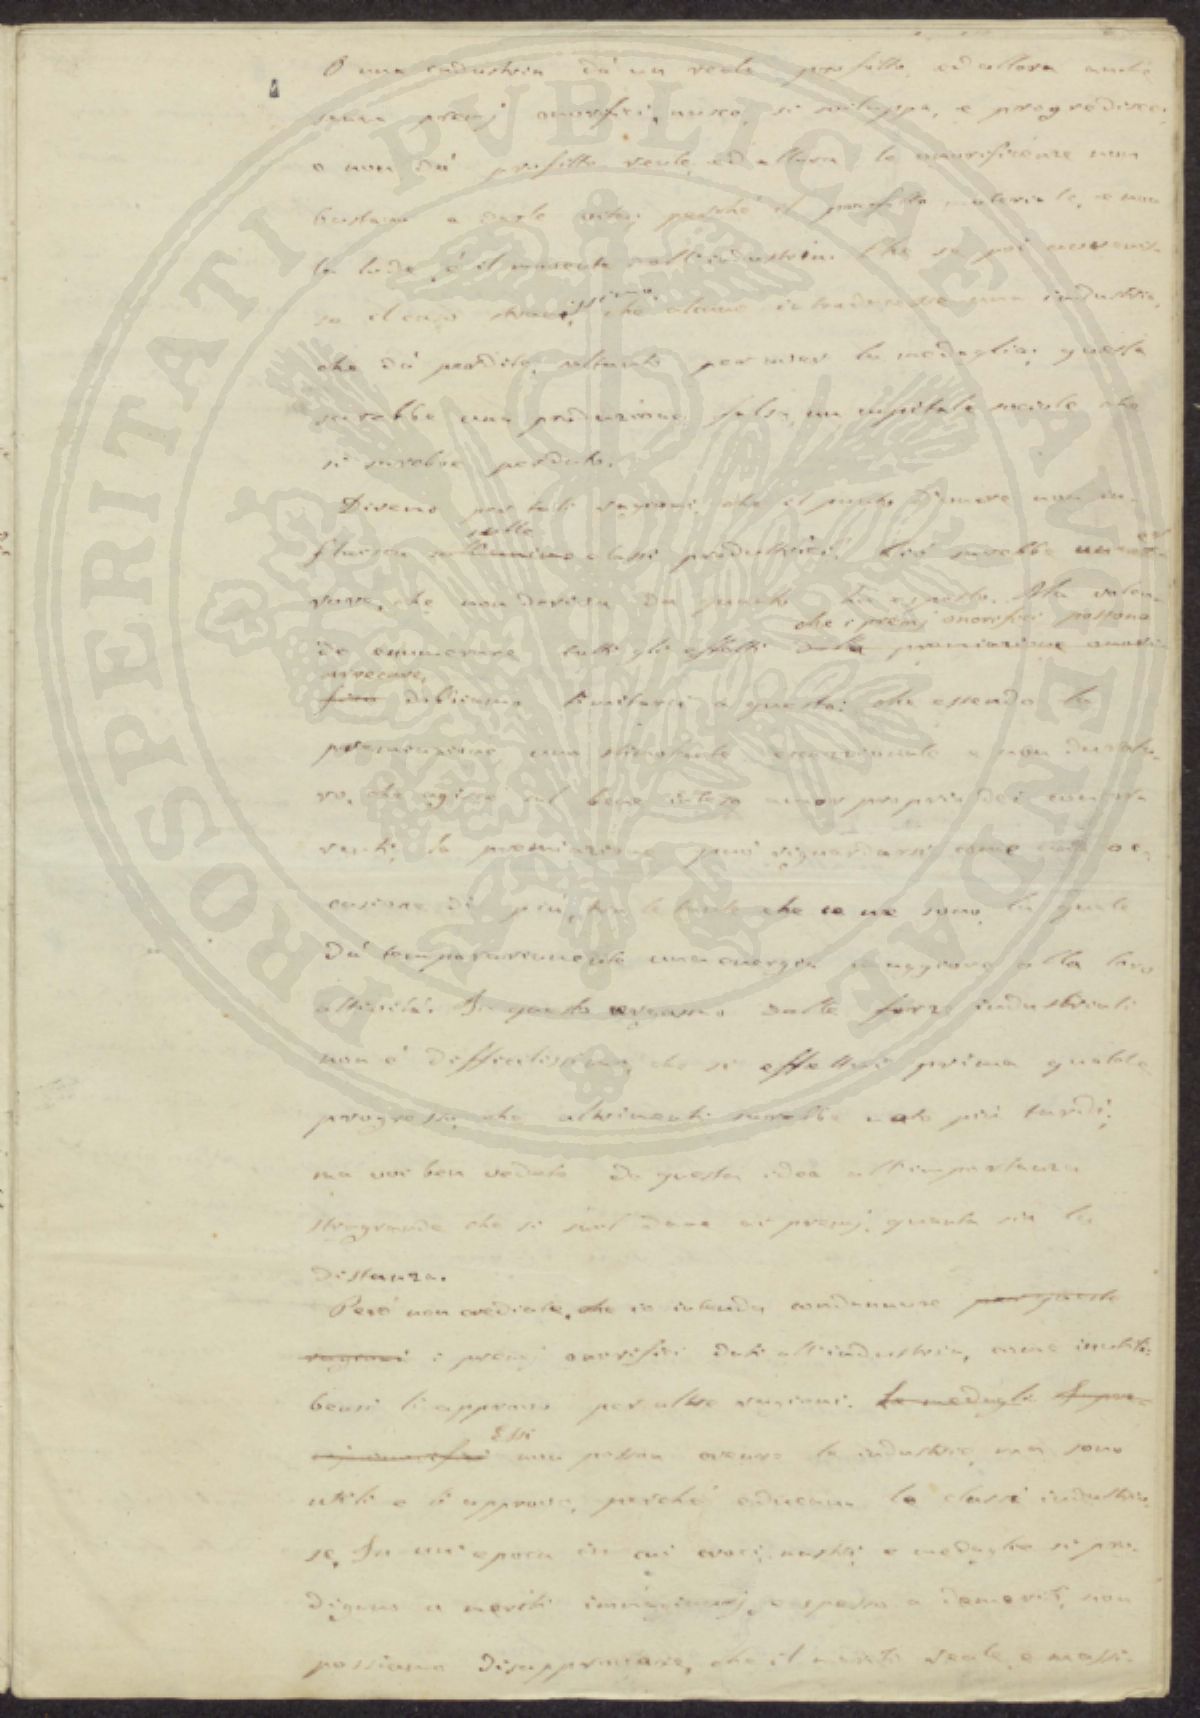 O una industria dà un reale profitto, ed allora anche
senza premj onorifici, nasce, si sviluppa, e progredisce;
o non dà profitto reale, ed allora le onorificenze non
bastano a darle vita; perché il profitto materiale, e non
la lode, è il movente dell'industria. Che se poi avvenis-
se il caso stranissimo, che alcuno introducesse una industria,
che dà perdite, soltanto per aver la medaglia; questa
sarebbe una produzione falsa, un capitale sociale che
si sarebbe perduto.
Diremo per tali ragioni, che il punto d'onore non in-
fluisca sulle classi produttrici? Ciò sarebbe un er-
rore, che non deriva da quanto ho esposto. Ma volen-
do enumerare tutti gli effetti che i premj onorifici possono
arrecare, dobbiamo limitarci a questo: che essendo la
premiazione uno stimolante eccezionale e non duratu-
ro, che agisce sul bene inteso amor proprio dei concor-
renti, la premiazione può riguardarsi come una oc-
casione di più, tra le tante che ce ne sono, la quale
dà temporaneamente una energia maggiore alla loro
attività. In questo orgasmo delle forze industriali
non è difficilissimo, che si effettui prima qualche
progresso, che altrimenti sarebbe nato più tardi;
ma voi ben vedete da questa idea all'importanza
stragrande che si suol dare ai premj, quanta sia la
distanza.
Però non crediate, che io intenda condannare per queste
ragioni i premj onorifici dati all'industria, come inutili:
bensì li approvo per altre ragioni. Le medagli I pre-
mj onorifici Essi non possono creare le industrie, ma sono
utili e li approvo, perché educano le classi industrio-
se. In un'epoca in cui croci, nastri, e medaglie si pro-
digano a meriti immaginarj, e spesso a demeriti, non
possiamo disapprovare, che il merito reale, e massi-